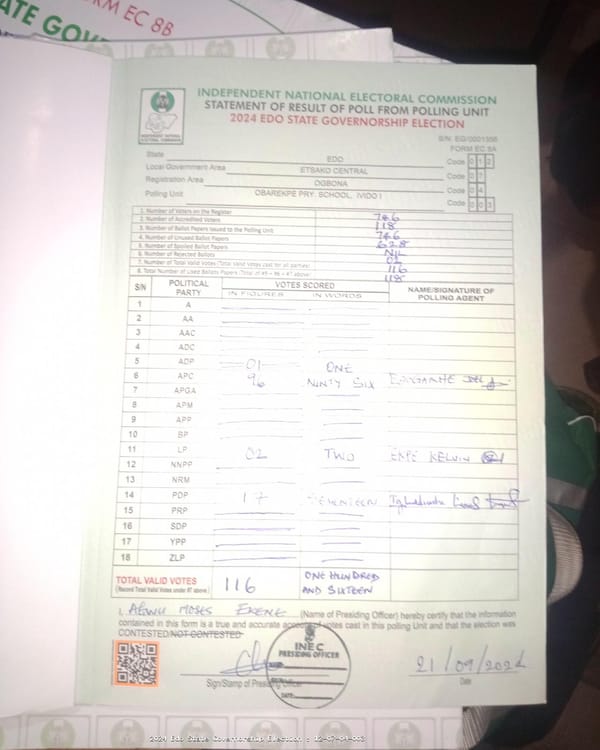 RM EC 8B
ATE GOV
INDEPENDENT NATIONAL ELECTORAL COMMISSION
STATEMENT OF RESULT OF POLL FROM POLLING UNIT
2024 EDO STATE GOVERNORSHIP ELECTION
INDEPENDENT NATIONAL ELECTORAL COMMISSION
FORM EC 8A
State EDO Code 0 1 2
Local Government Area ETSAKO CENTRAL Code 0 7
Registration Area OGBONA Code 0 4
Polling Unit OBAREKPE PRY. SCHOOL, IVIDO I Code 0 0 3
1. Number of Voters on the Register 746
2. Number of Accredited Voters 118
3. Number of Ballot Papers Issued to the Polling Unit 746
4. Number of Unused Ballot Papers 628
5. Number of Spoiled Ballot Papers NIL
6. Number of Rejected Ballots 02
7. Number of Total Valid Votes (Total Valid Votes cast for all parties) 116
8. Total Number of Used Ballots Papers (Total of #5 + #6 + #7 above) 118
S/N POLITICAL PARTY VOTES SCORED NAME/SIGNATURE OF POLLING AGENT
IN FIGURES IN WORDS
1 A
2 AA
3 AAC
4 ADC
5 ADP 01 ONE
6 APC 96 NINTY SIX
7 APGA
8 APM
9 APP
10 BP
11 LP 02 TWO EKPE KELVIN
12 NNPP
13 NRM
14 PDP 17 SEVENTEEN
15 PRP
16 SDP
17 YPP
18 ZLP
TOTAL VALID VOTES 116 ONE HUNDRED AND SIXTEEN
(Record Total Valid Votes under #7 above)
I, MOSES (Name of Presiding Officer) hereby certify that the information
contained in this form is a true and accurate account of votes cast in this polling Unit and that the election was
CONTESTED/NOT CONTESTED
INEC
PRESIDING OFFICER
DATE
21/09/2024
Sign/Stamp of Presiding Officer Date
2024 Edo State Governorship Election : 12-07-04-003